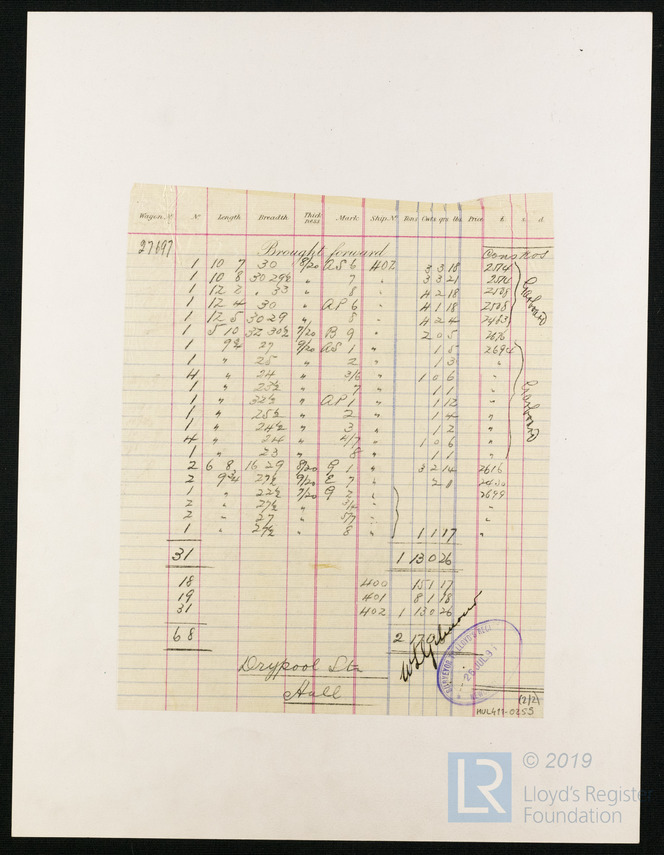 Wagon Nº Nº Length Breadth Thick ness Mark Ship Nº Tons Cwts qrs lbs Price £ s. d.
27697 Brought forward Cons Nos
1 10 7 30 8/20 AS 6 402 3 3 18 2574
1 10 8 30 29½ " 7 " 3 3 21
1 12 2 " 33 " 8 " 4 2 18 2508
1 12 4 30 " AP 6 " 4 1 18 2508
1 12 5 30 29 " 8 " 4 2 4
1 5 10 32 30½ 7/20 B 9 " 2 0 5
1 9¾ 27 9/20 AS 1 " 1 5 2694
1 " 25 " 2 " 1 3 "
4 " 24 " 3/6 " 1 0 6 "
1 " 23½ " 7 " 1 1 "
1 " 32½ " AP 1 " 1 12 "
1 " 28½ " 2 " 1 4 "
1 " 24½ " 3 " 1 2 "
4 " 24 " 4/7 " 1 0 6 "
1 " 23 " 8 " 1 1 "
2 6 8 16 29 8/20 G 1 " 3 2 14 2616
2 9¾ 27½ 9/20 E 7 " 2 0
1 " 22½ 7/20 G 2 " 2699
2 " 27½ " " "
2 " 27 " 5/7 "
1 " 27½ " 8 " 1 1 17 "
Garboard
Garboard
31 1 13 0 26
18 400 15 1 17
19 401 8 1 18
31 402 1 13 0 26
68 2 17
Drypool Stn
Hull
26 JUL
(2/2)
HUL411-0255
LR
© 2019
Lloyd's Register
Foundation